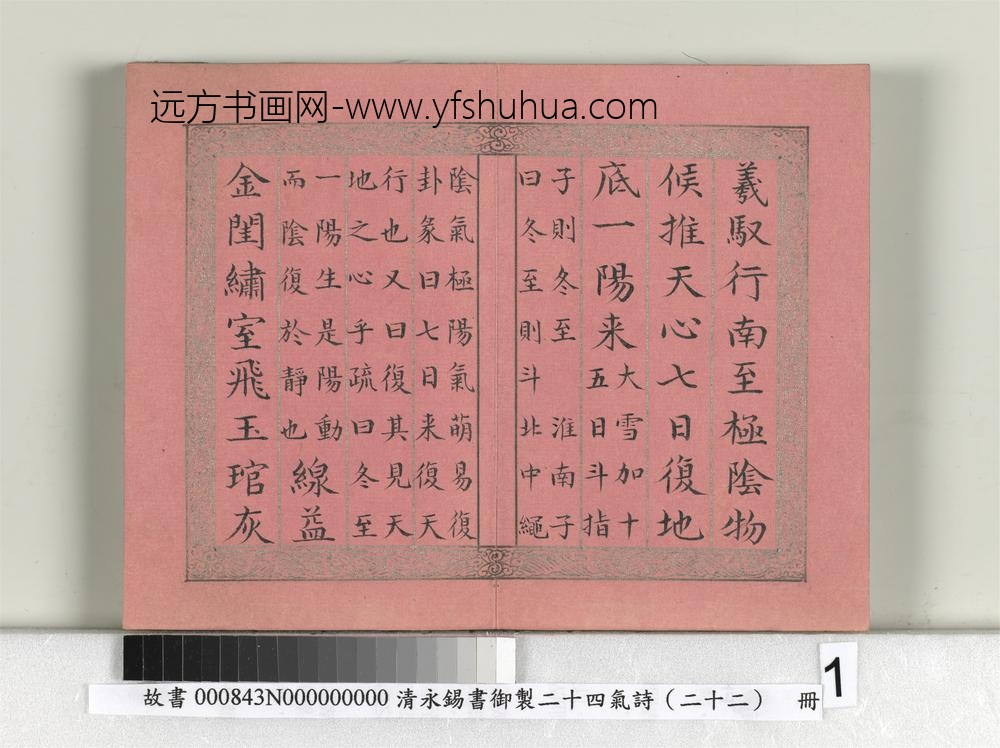 远方书画网-www.yfshuhua.com
羲馭行南至極陰物
候推天心七日復地
底一陽来
大雪加十
五日斗指
子則冬至 淮南子
曰冬至則斗北中繩
陰氣極陽氣萌易復
卦彖曰七日来復天
行也又曰復其見天
地之心乎疏曰冬至
一陽生是陽動
而陰復於靜也
線益
金閨繡室飛玉琯灰
故書 000843N000000000 清永錫書御製二十四氣詩（二十二） 冊
1